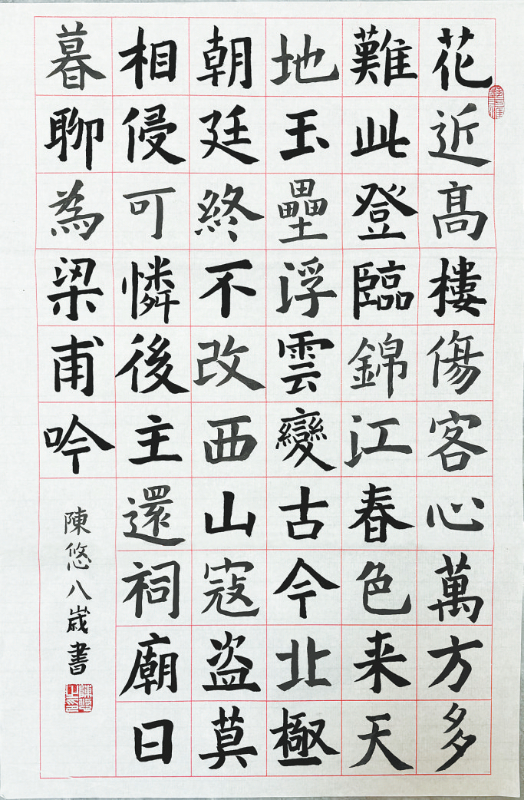 花近髙樓傷客心萬方多
難此登臨錦江春色来天
地玉壘浮雲變古今北極
朝廷終不改西山寇盗莫
相侵可憐後主還祠廟日
暮聊為梁甫吟
陳悠八歲書